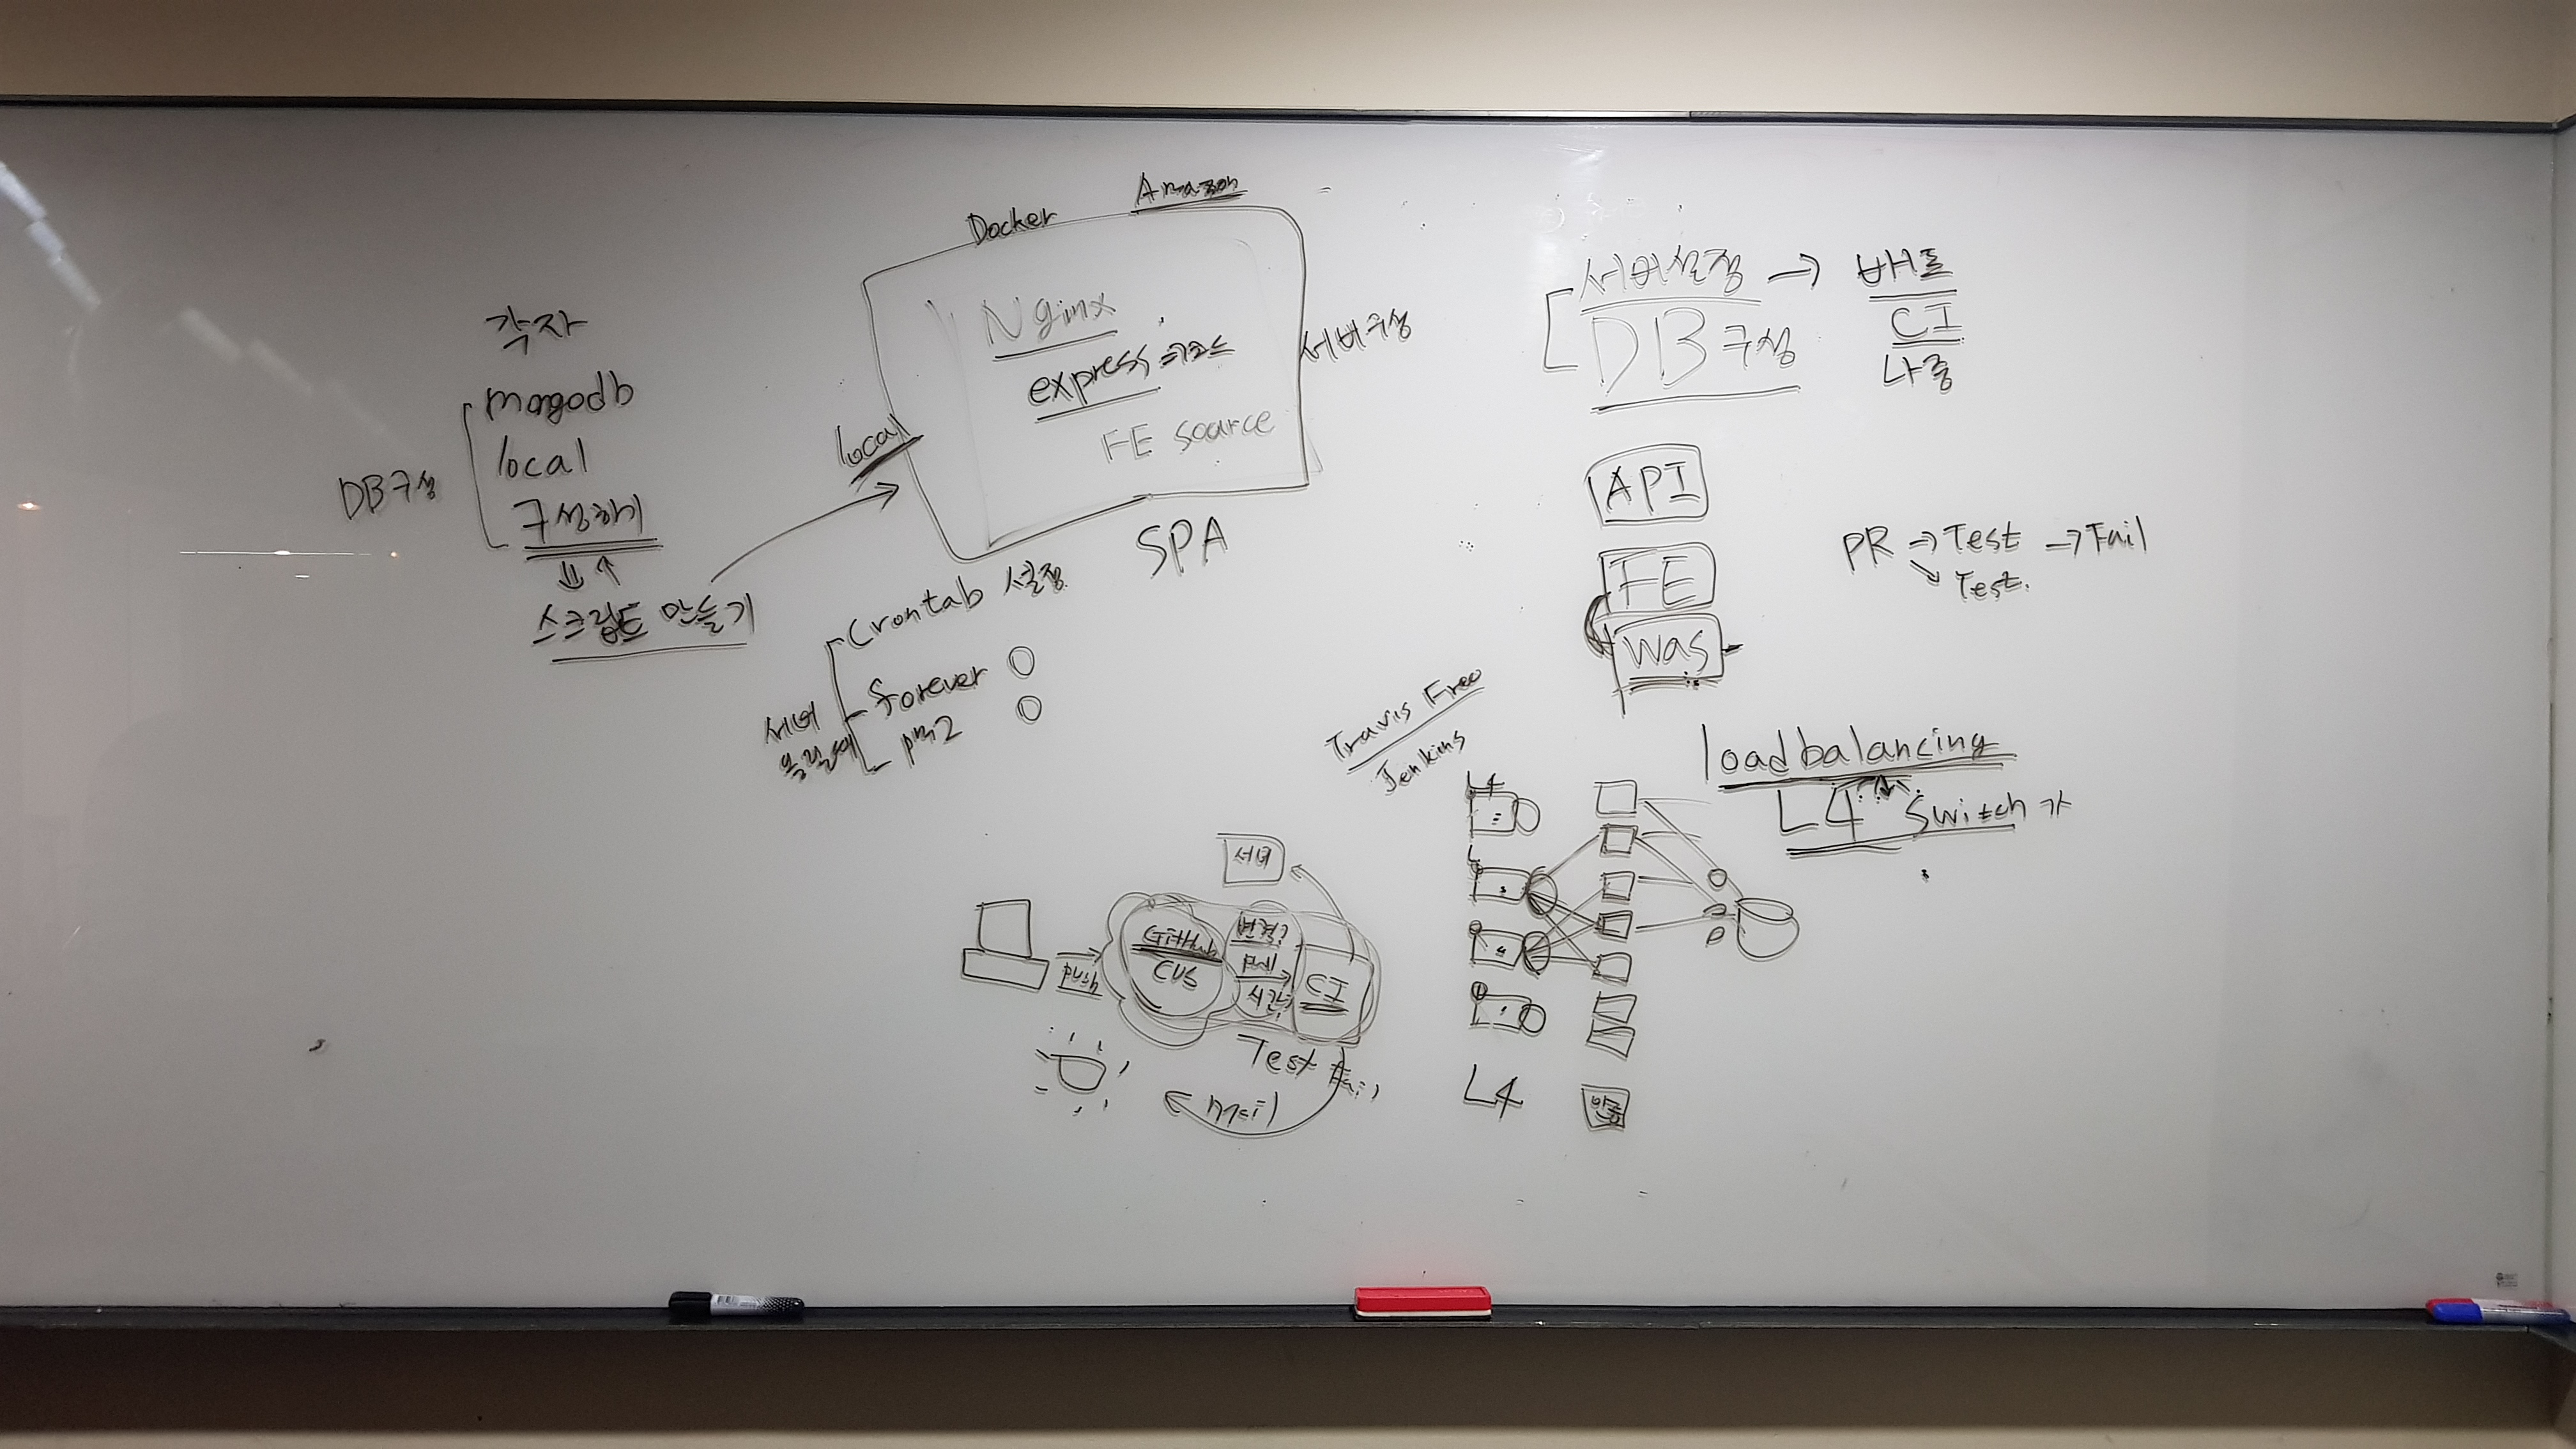 각자
mongodb
local
구성하기
DB구성
스크립트 만들기
Docker
Amazon
Nginx
express
FE source
local
서버구성
SPA
Crontab 설정
forever
pm2
서버
올릴때
서버설정 → 배포
DB구성
CI
나중
API
FE
was
PR → Test → Fail
Test.
Travis Free
Jenkins
loadbalancing
L4 Switch가
L4
서버
push
GitHub
CVS
변경?
pull
시간?
CI
Test Fail
mail
L4